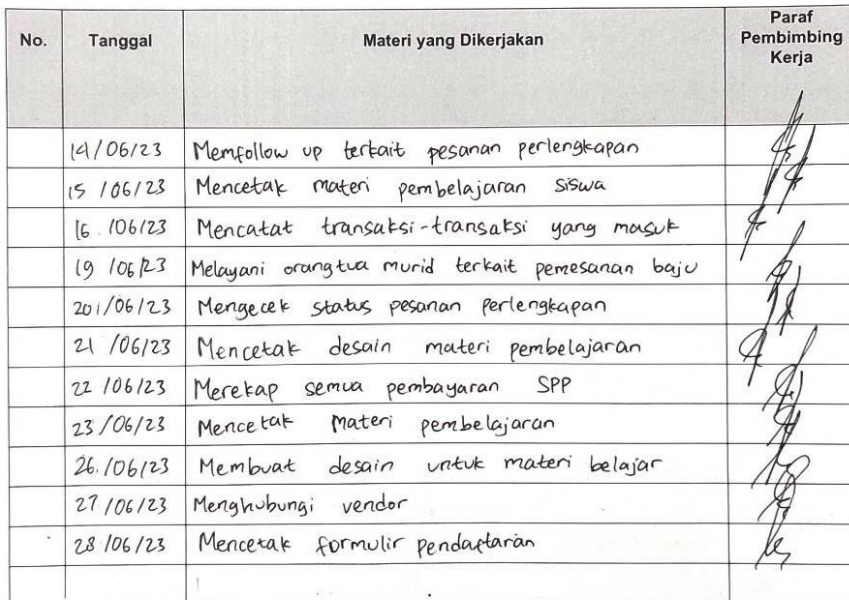 No. Tanggal Materi yang Dikerjakan Paraf Pembimbing Kerja
14/06/23 Memfollow up terkait pesanan perlengkapan
15/06/23 Mencetak materi pembelajaran siswa
16/06/23 Mencatat transaksi-transaksi yang masuk
19/06/23 Melayani orangtua murid terkait pemesanan baju
20/06/23 Mengecek status pesanan perlengkapan
21/06/23 Mencetak desain materi pembelajaran
22/06/23 Merekap semua pembayaran SPP
23/06/23 Mencetak Materi pembelajaran
26/06/23 Membuat desain untuk materi belajar
27/06/23 Menghubungi vendor
28/06/23 Mencetak formulir pendaftaran